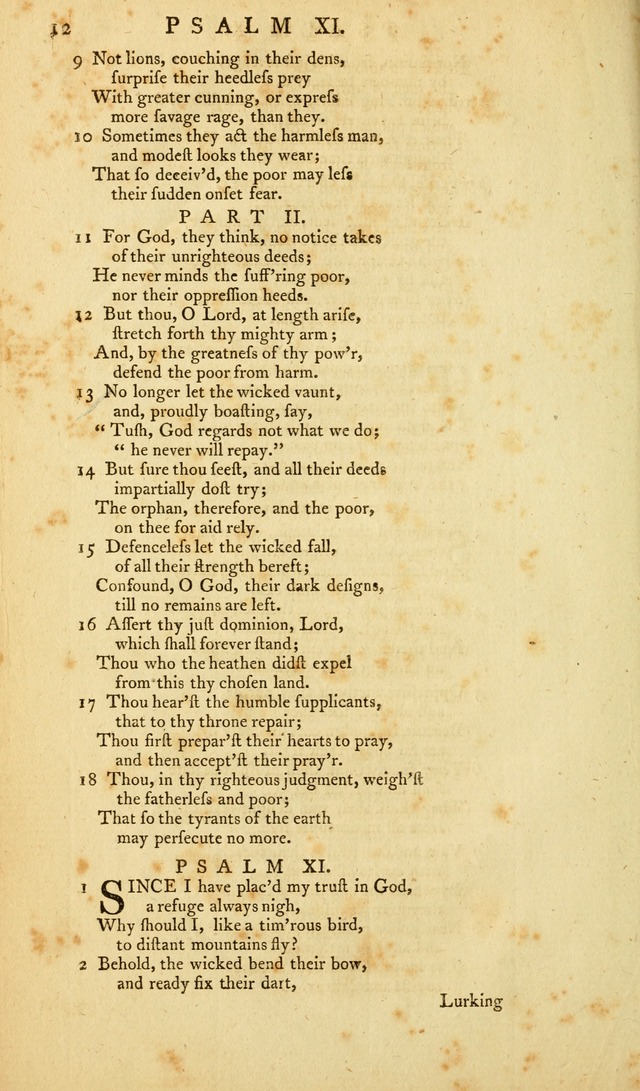 12 PSALM XI.
9 Not lions, couching in their dens,
ſurpriſe their heedleſs prey
With greater cunning, or expreſs
more ſavage rage, than they.
10 Sometimes they act the harmleſs man,
and modeſt looks they wear;
That ſo deceiv'd, the poor may leſs
their ſudden onſet fear.
PART II.
11 For God, they think, no notice takes
of their unrighteous deeds;
He never minds the ſuff'ring poor,
nor their oppreſſion heeds.
12 But thou, O Lord, at length ariſe,
ſtretch forth thy mighty arm;
And, by the greatneſs of thy pow'r,
defend the poor from harm.
13 No longer let the wicked vaunt,
and, proudly boaſting, ſay,
“ Tuſh, God regards not what we do;
“ he never will repay.”
14 But ſure thou ſeeſt, and all their deeds
impartially doſt try;
The orphan, therefore, and the poor,
on thee for aid rely.
15 Defenceleſs let the wicked fall,
of all their ſtrength bereft;
Confound, O God, their dark deſigns,
till no remains are left.
16 Aſſert thy juſt dominion, Lord,
which ſhall forever ſtand;
Thou who the heathen didſt expel
from this thy choſen land.
17 Thou hear'ſt the humble ſupplicants,
that to thy throne repair;
Thou firſt prepar'ſt their hearts to pray,
and then accept'ſt their pray'r.
18 Thou, in thy righteous judgment, weigh'ſt
the fatherleſs and poor;
That ſo the tyrants of the earth
may perſecute no more.
PSALM XI.
1 SINCE I have plac'd my truſt in God,
a refuge always nigh,
Why ſhould I, like a tim'rous bird,
to diſtant mountains fly?
2 Behold, the wicked bend their bow,
and ready fix their dart,
Lurking